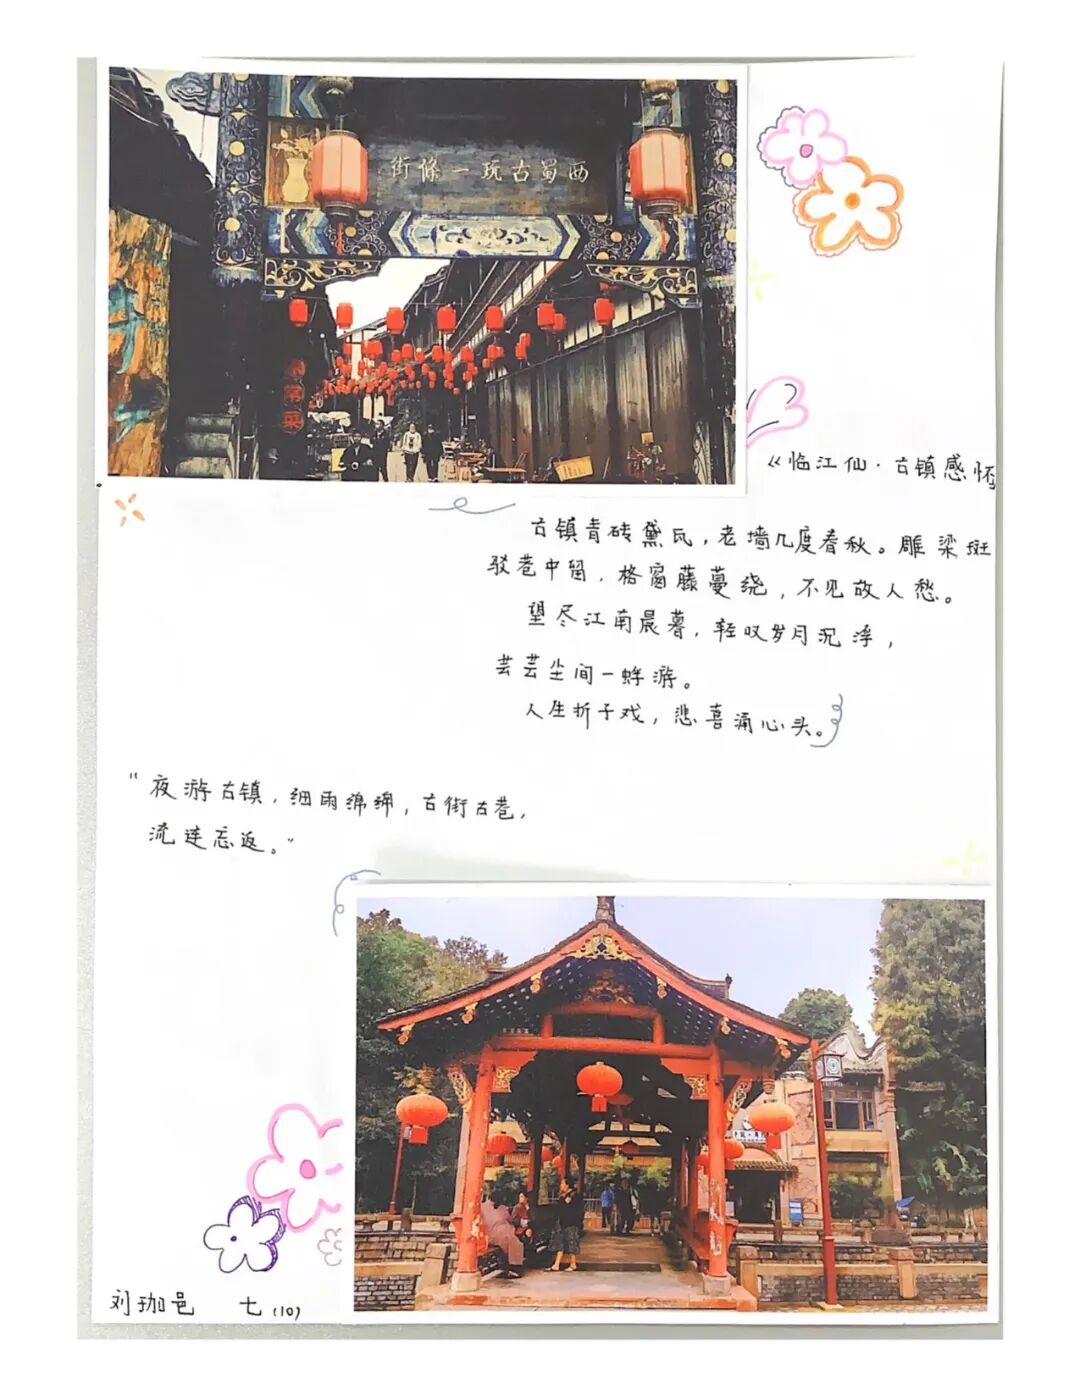 西蜀古玩一條街
常菜
《临江仙·古镇感怀
古镇青砖黛瓦，老墙几度春秋。雕梁斑
驳巷中留，格窗藤蔓绕，不见故人愁。
望尽江南晨暮，轻叹岁月沉浮，
芸芸尘间一蜉游。
人生折子戏，悲喜涌心头。
“夜游古镇，细雨绵绵，古街古巷，
流连忘返。”
刘珈邑 七(10)